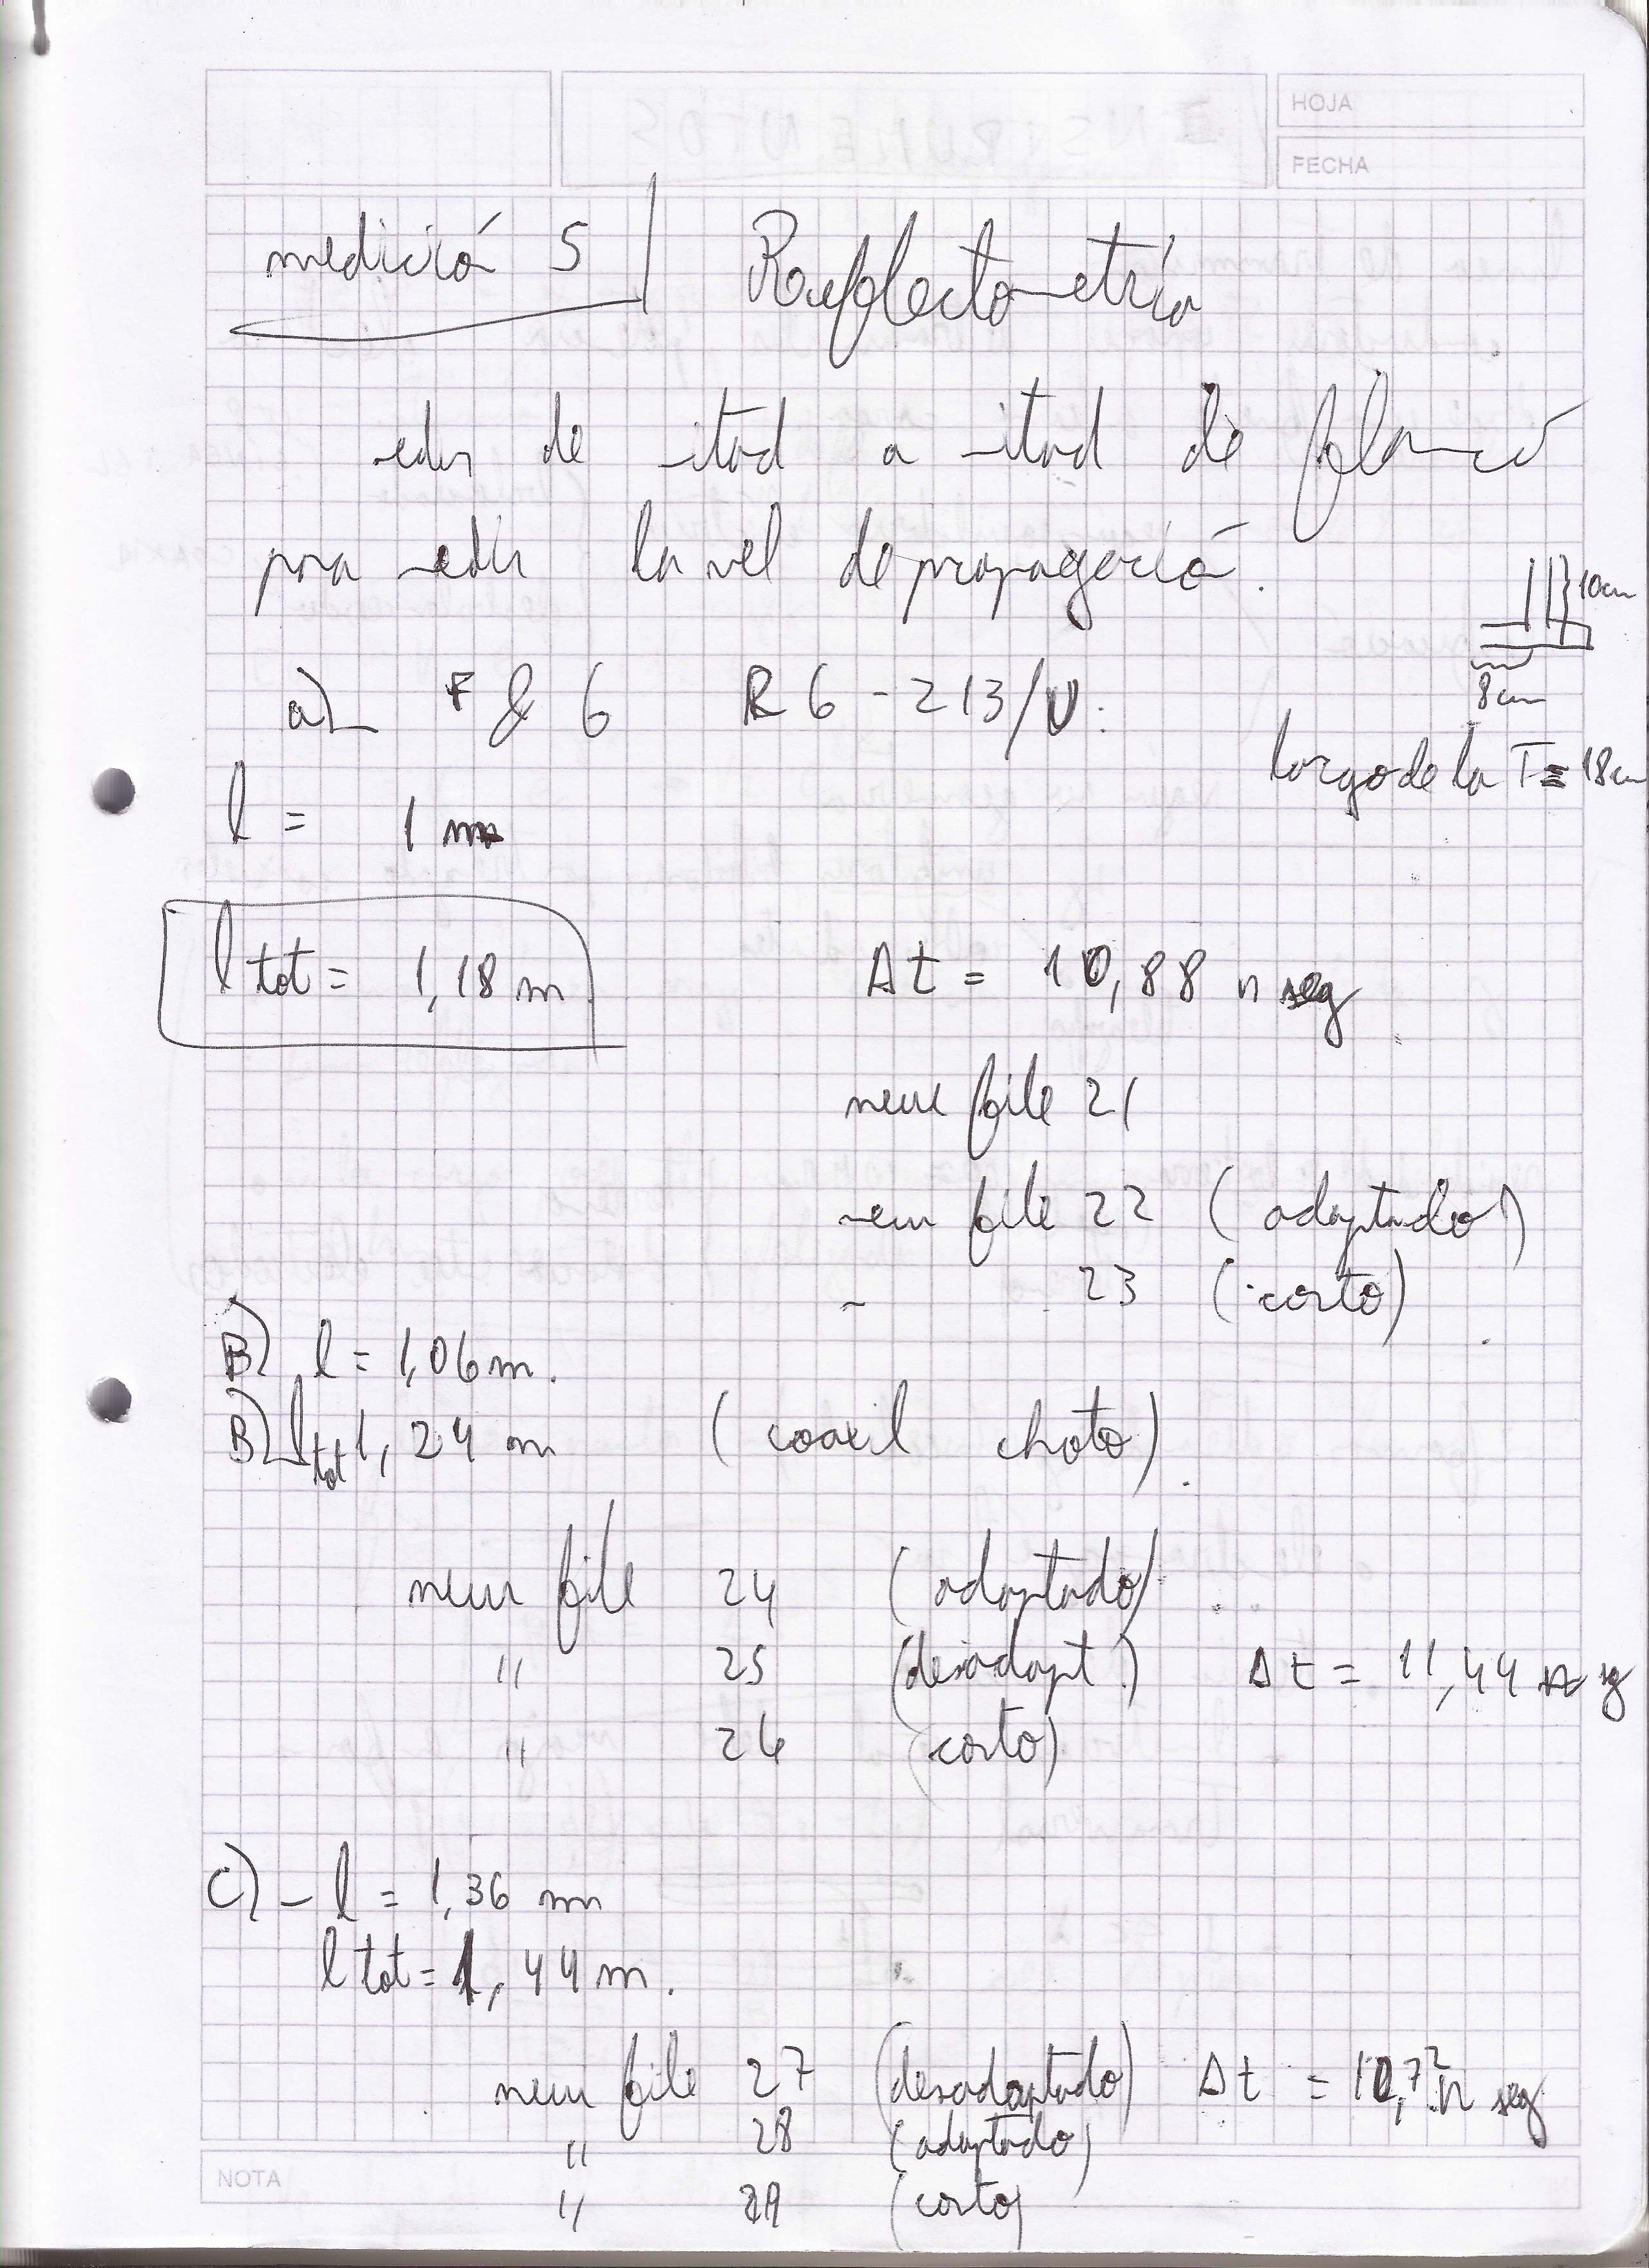 HOJA
FECHA
medició 5 Reflectometría
edir de itad a itad de flanco
para edir la vel de propagació.
10cm
8cm
a) F & G RG-213/U.
largo de la T = 18cm
l = 1 m
l tot = 1,18 m Δt = 10,88 n seg
new file 21
new file 22 (adaptado)
23 (corto)
B) l = 1,06 m.
B) l tot 1,24 m (coaxil choto).
new file 24 (adaptado)
" 25 (desadapt.) Δt = 11,44 n sg
" 26 (corto)
C) - l = 1,36 m
l tot = 1,44 m.
new file 27 (desadaptado) Δt = 10,72 n seg
" 28 (adaptado)
" 29 (corto)
NOTA